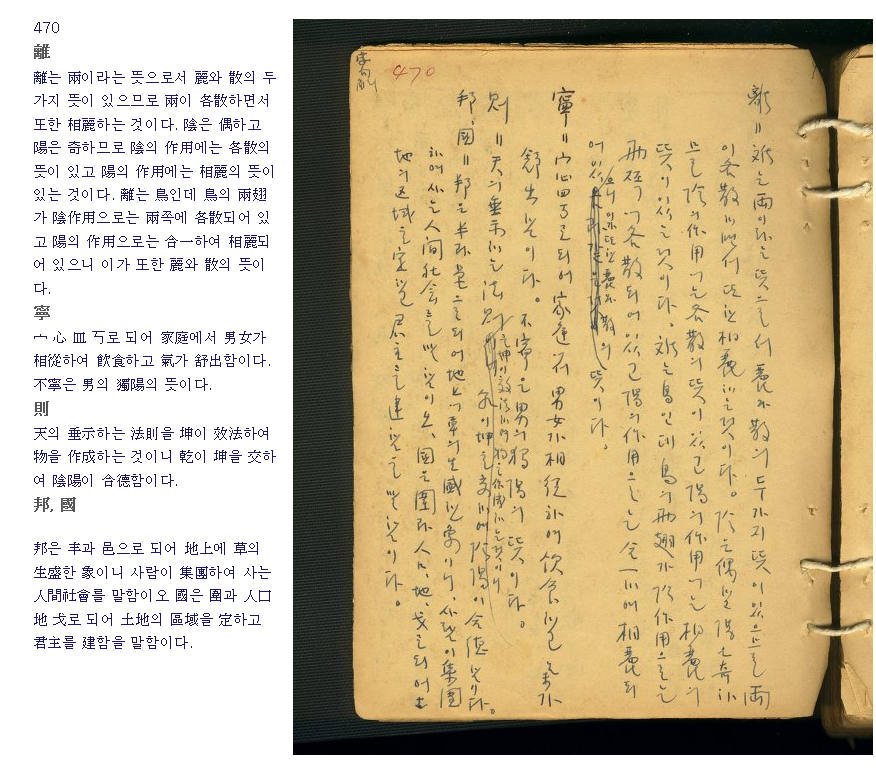 470
離
離는 兩이라는 뜻으로서 麗와 散의 두
가지 뜻이 있으므로 兩이 各散하면서
또한 相麗하는 것이다. 陰은 偶하고
陽은 奇하므로 陰의 作用에는 各散의
뜻이 있고 陽의 作用에는 相麗의 뜻이
있는 것이다. 離는 鳥인데 鳥의 兩翅
가 陰作用으로는 兩쪽에 各散되어 있
고 陽의 作用으로는 合一하여 相麗되
어 있으니 이가 또한 麗와 散의 뜻이
다.
寧
宀 心 皿 丂로 되어 家庭에서 男女가
相從하여 飮食하고 氣가 舒出함이다.
不寧은 男의 獨陽의 뜻이다.
則
天의 垂示하는 法則을 坤이 效法하여
物을 作成하는 것이니 乾이 坤을 交하
여 陰陽이 合德함이다.
邦, 國
邦은 丰과 邑으로 되어 地上에 草의
生盛한 象이니 사람이 集團하여 사는
人間社會를 말함이오 國은 圍과 人口
地 戈로 되어 土地의 區域을 定하고
君主를 建함을 말함이다.
470
離 = 離는 兩이라는 뜻으로서 麗와 散의 두가지 뜻이 있으므로 兩
이 各散하면서 또한 相麗하는 것이다. 陰은 偶하고 陽은 奇하
므로 陰의 作用에는 各散의 뜻이 있고 陽의 作用에는 相麗의
뜻이 있는 것이다. 離는 鳥인데 鳥의 兩翅가 陰作用으로는
兩쪽에 各散되어 있고 陽의 作用으로는 合一하여 相麗되
어 있으니 이가 또한 麗와 散의 뜻이다.
寧 = 宀心皿丂로 되어 家庭에서 男女가 相從하여 飮食하고 氣가
舒出함이다. 不寧은 男의 獨陽의 뜻이다.
則 = 天의 垂示하는 法則을 坤이 效法하여 物을 作成하는 것이니 乾이 坤을 交하여 陰陽이 合德함이다.
邦, 國 = 邦은 丰과 邑으로 되어 地上에 草의 生盛한 象이니, 사람이 集團
하여 사는 人間社會를 말함이오, 國은 圍과 人口, 地, 戈로 되어 土
地의 區域을 定하고 君主를 建함을 말함이다.